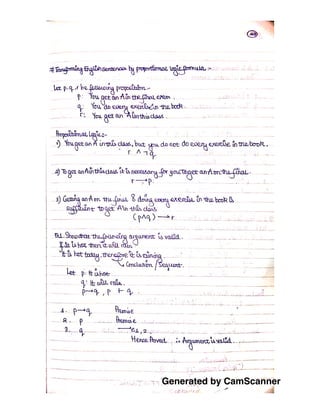 # Transforming English sentences by propositional logic formula :-
Let p, q, r be following propositions :-
p: You get an A in the final exam
q: You do every exercise in the book.
r: You get an "A" in this class.
Propositional Logic:-
1) You get an A in this class, but you do not do every exercise in the book.
r ∧ ¬q
2) To get an A in this class it is necessary for you to get an A on the final.
r → p.
3) Getting an A on the final & doing every exercise in the book is
sufficient to get A in this class
(p∧q) → r
Show that the following argument is valid.
If it is hot then it will rain.
It is hot today, therefore it is raining
Conclusion / Sequent.
Let p: It is hot
q: It will rain.
p→q, p ⊢ q.
1. p→q Premise
2. p Premise
3. q →e 1, 2.
Hence Proved ∴ Argument is valid.
Generated by CamScanner